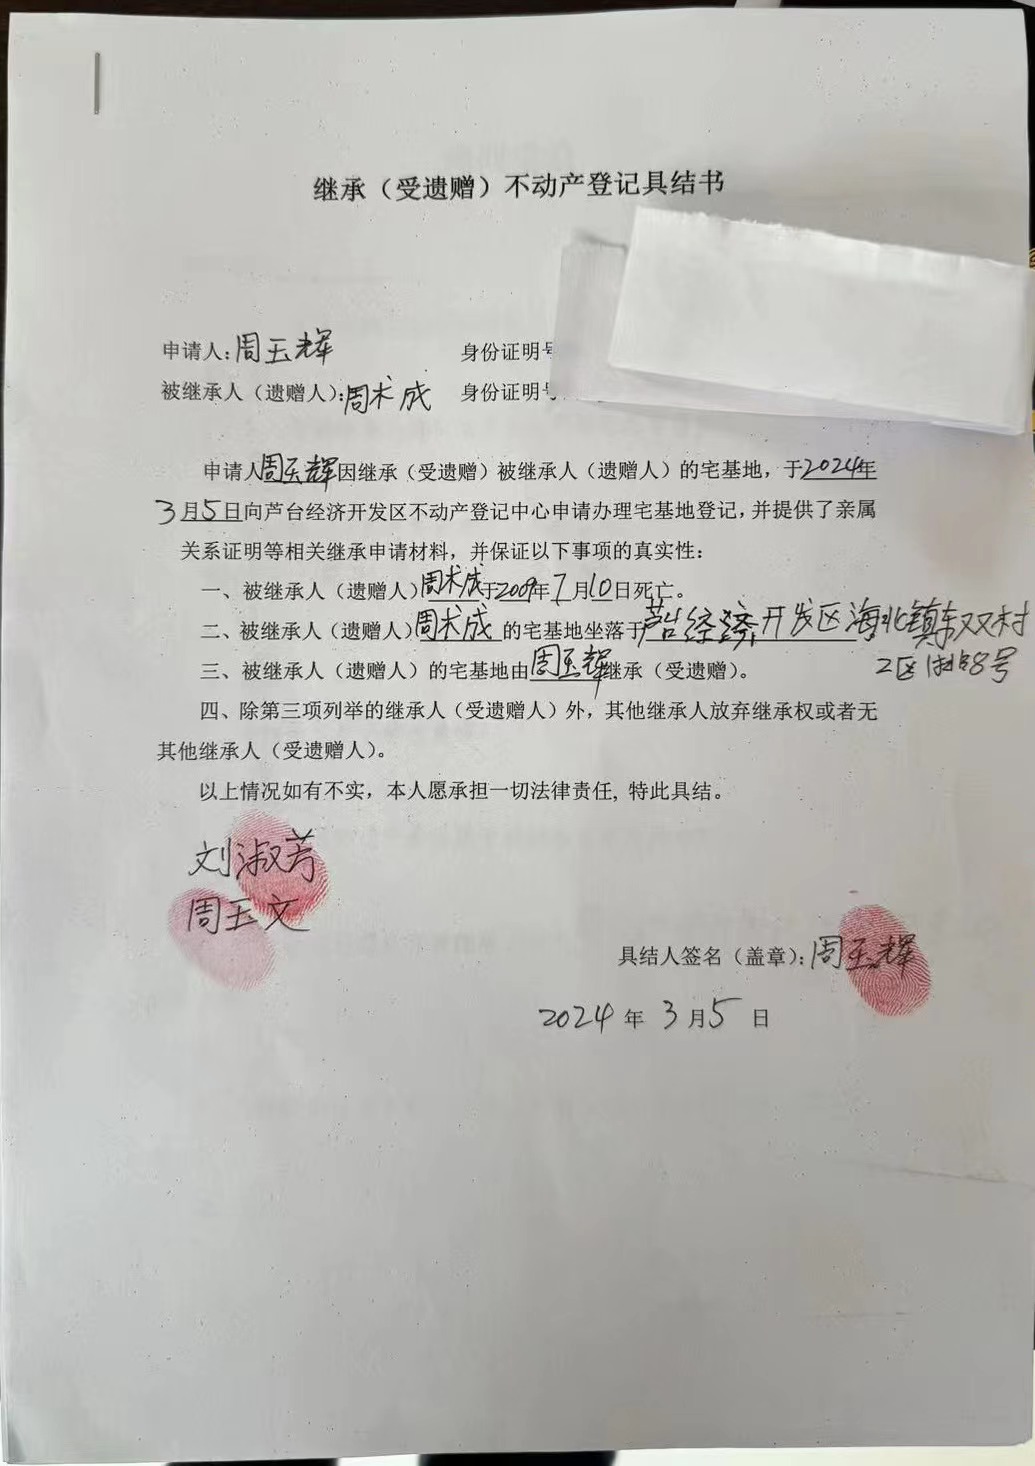 继承（受遗赠）不动产登记具结书
申请人：周玉辉 身份证明号
被继承人（遗赠人）：周术成 身份证明号
申请人周玉辉因继承（受遗赠）被继承人（遗赠人）的宅基地，于2024年
3月5日向芦台经济开发区不动产登记中心申请办理宅基地登记，并提供了亲属
关系证明等相关继承申请材料，并保证以下事项的真实性：
一、被继承人（遗赠人）周术成于2009年7月10日死亡。
二、被继承人（遗赠人）周术成的宅基地坐落于芦台经济开发区海北镇东双村
2区 88号
三、被继承人（遗赠人）的宅基地由周玉辉继承（受遗赠）。
四、除第三项列举的继承人（受遗赠人）外，其他继承人放弃继承权或者无
其他继承人（受遗赠人）。
以上情况如有不实，本人愿承担一切法律责任，特此具结。
刘淑芳
周玉文
具结人签名（盖章）：周玉辉
2024年3月5日